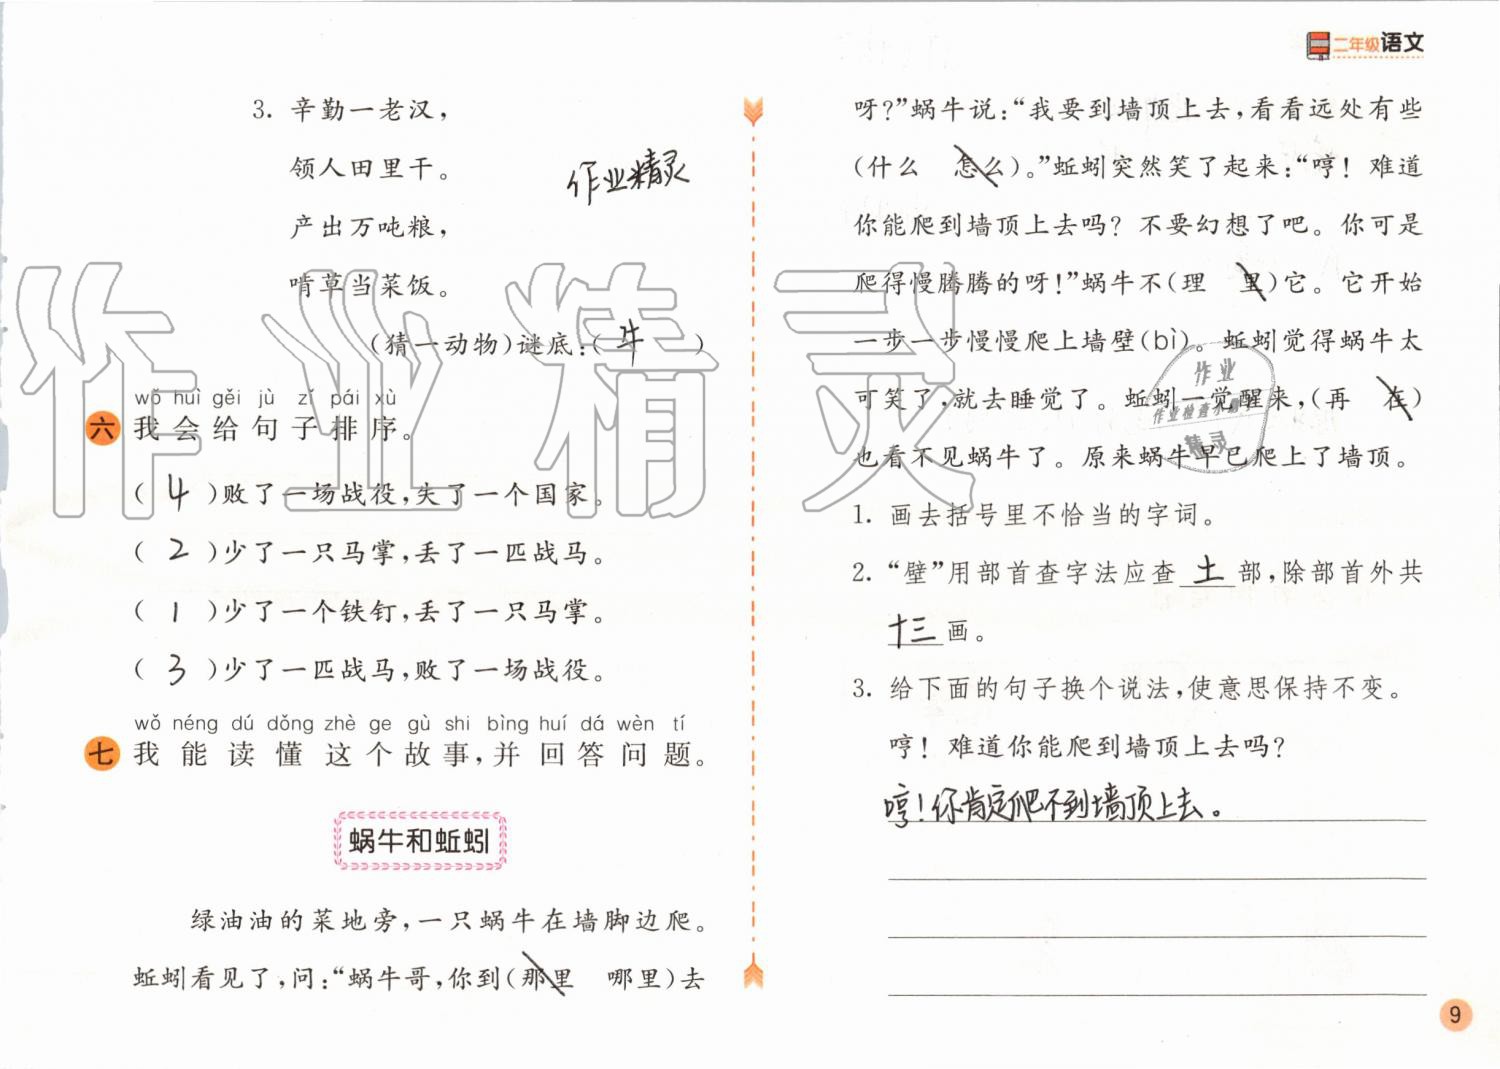 二年级语文
3. 辛勤一老汉，
领人田里干。
产出万吨粮，
啃草当菜饭。
(猜一动物)谜底：( 牛 )
作业精灵
wǒ huì gěi jù zǐ pái xù
六 我会给句子排序。
( 4 )败了一场战役，失了一个国家。
( 2 )少了一只马掌，丢了一匹战马。
( 1 )少了一个铁钉，丢了一只马掌。
( 3 )少了一匹战马，败了一场战役。
wǒ néng dú dǒng zhè ge gù shi bìng huí dá wèn tí
七 我能读懂这个故事，并回答问题。
蜗牛和蚯蚓
绿油油的菜地旁，一只蜗牛在墙脚边爬。
蚯蚓看见了，问：“蜗牛哥，你到(那里 哪里)去
呀？”蜗牛说：“我要到墙顶上去，看看远处有些
(什么 怎么)。”蚯蚓突然笑了起来：“哼！难道
你能爬到墙顶上去吗？不要幻想了吧。你可是
爬得慢腾腾的呀！”蜗牛不(理 里)它。它开始
一步一步慢慢爬上墙壁(bì)。蚯蚓觉得蜗牛太
可笑了，就去睡觉了。蚯蚓一觉醒来，(再 在)
也看不见蜗牛了。原来蜗牛早已爬上了墙顶。
1. 画去括号里不恰当的字词。
2. “壁”用部首查字法应查 土 部，除部首外共
十三 画。
3. 给下面的句子换个说法，使意思保持不变。
哼！难道你能爬到墙顶上去吗？
哼！你肯定爬不到墙顶上去。
作业精灵
作业
作业检查小
精灵
9